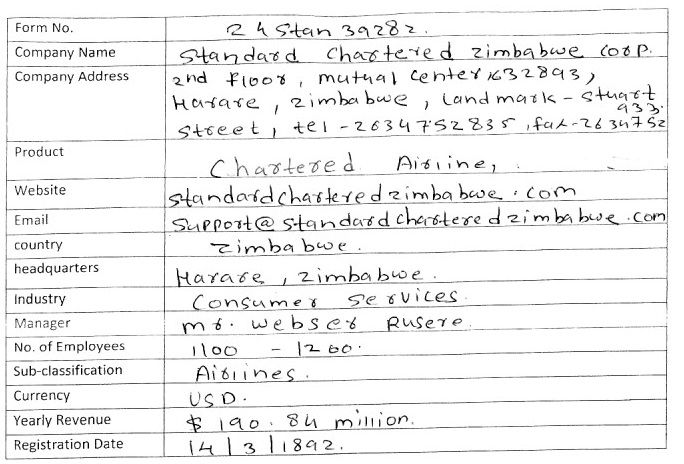 Form No. 24Stan39282.
Company Name Standard Chartered Zimbabwe Corp.
Company Address 2nd Floor, mutual Center K632893,
Harare, Zimbabwe, Landmark - Stuart
Street, tel - 2634752835, fax-2634752
933.
Product Chartered Airline,
Website standardcharteredzimbabwe.com
Email Support@standardcharteredzimbabwe.com
country Zimbabwe.
headquarters Harare, Zimbabwe.
Industry Consumer Services.
Manager mr. Webser Rusere.
No. of Employees 1100 - 1200.
Sub-classification Airlines.
Currency USD.
Yearly Revenue $ 190.84 million.
Registration Date 14/3/1892.